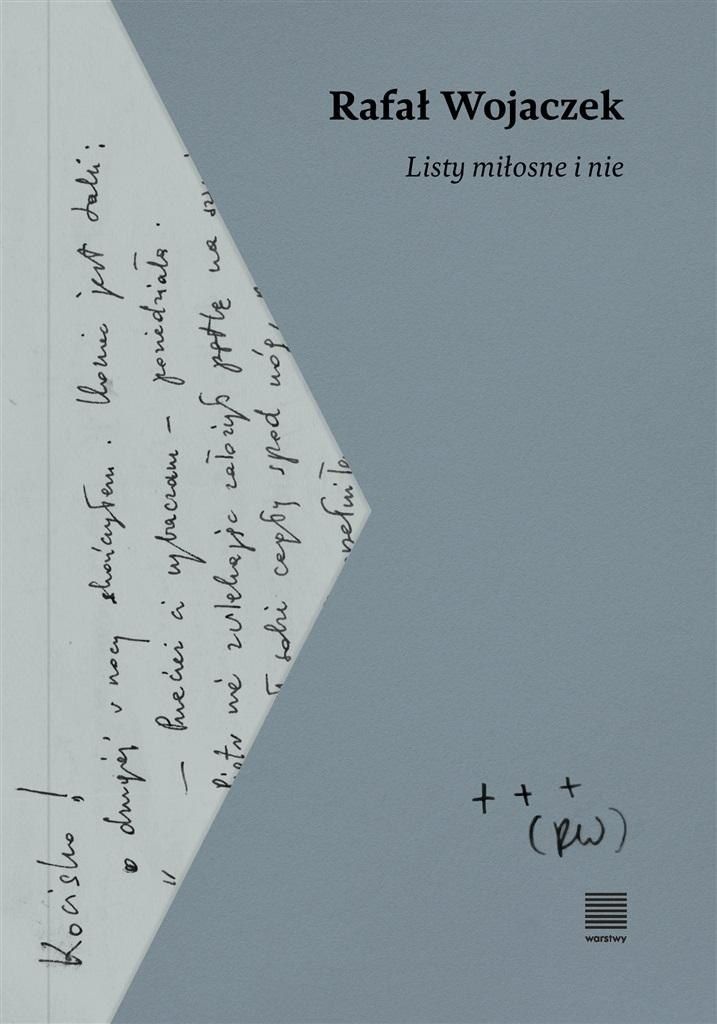 Rafał Wojaczek
Listy miłosne i nie
Kociško!
o drugiej w nocy skończyłem. Koniec jest taki:
"— Przecież ci wybaczam — powiedziała.
Piotr nie zwlekając założył pętlę na
sobie cegły spod nóg,
+ + +
(RW)
warstwy